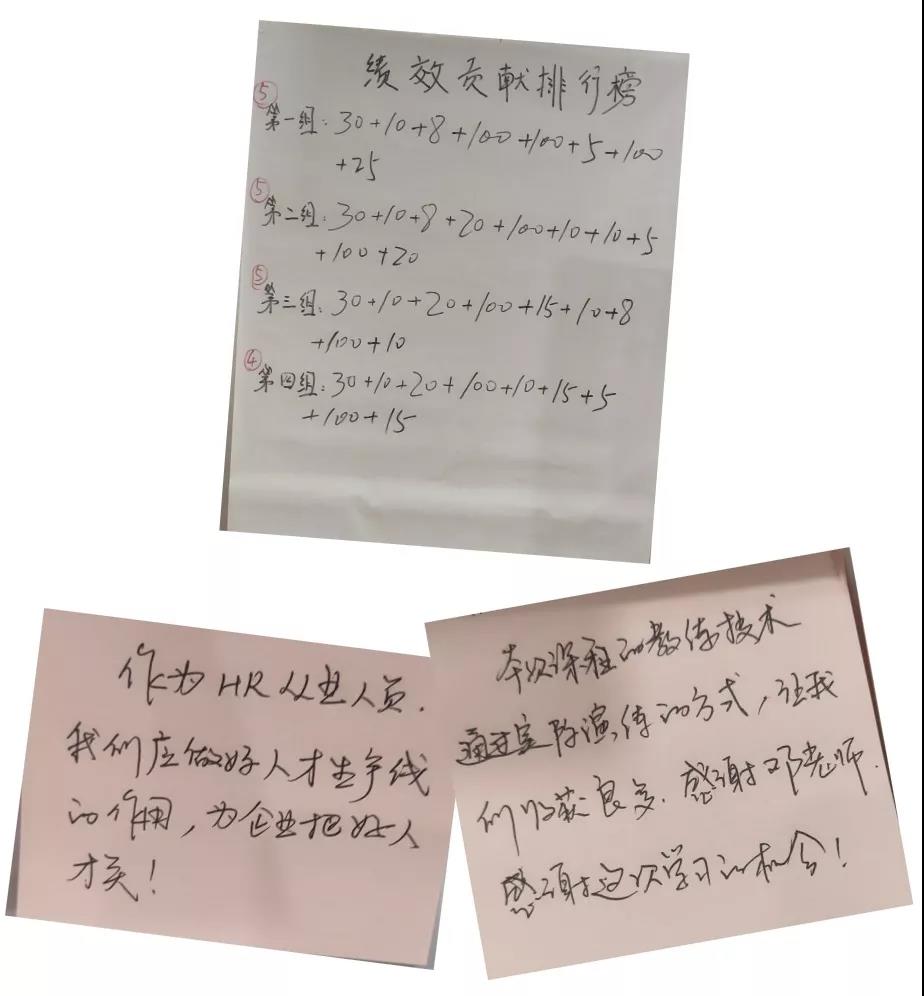 绩效贡献排行榜
⑤
第一组：30+10+8+100+100+5+100
+25
⑤
第二组：30+10+8+20+100+10+10+5
+100+20
⑤
第三组：30+10+20+100+15+10+8
+100+10
④
第四组：30+10+20+100+10+15+5
+100+15
作为HR从业人员.
我们应做好人才生产线
的作用，为企业把好人
才关！
本次课程的教练技术
通过实际演练的方式，让我
们收获良多.感谢邓老师.
感谢这次学习的机会！